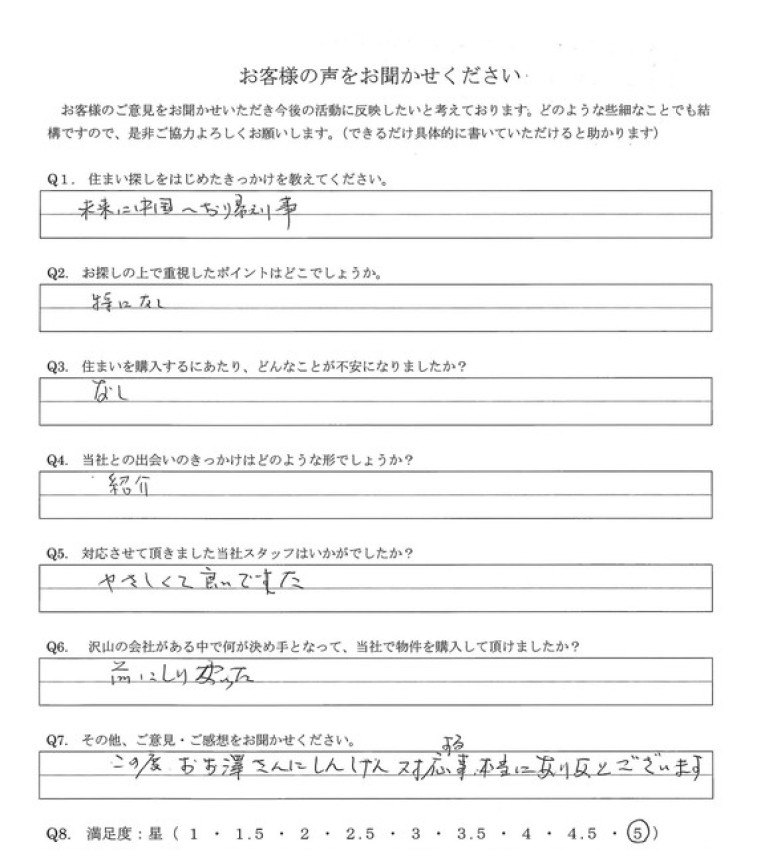 お客様の声をお聞かせください
お客様のご意見をお聞かせいただき今後の活動に反映したいと考えております。どのような些細なことでも結
構ですので、是非ご協力よろしくお願いします。（できるだけ具体的に書いていただけると助かります）
Q1. 住まい探しをはじめたきっかけを教えてください。
未来に中国へ 事
Q2. お探しの上で重視したポイントはどこでしょうか。
特になし
Q3. 住まいを購入するにあたり、どんなことが不安になりましたか？
なし
Q4. 当社との出会いのきっかけはどのような形でしょうか？
紹介
Q5. 対応させて頂きました当社スタッフはいかがでしたか？
やさしくて良いでました
Q6. 沢山の会社がある中で何が決め手となって、当社で物件を購入して頂けましたか？
前に
Q7. その他、ご意見・ご感想をお聞かせください。
この度 澤さんにしんけん対応する事、本当にありがとございます
Q8. 満足度：星（ 1 ・ 1.5 ・ 2 ・ 2.5 ・ 3 ・ 3.5 ・ 4 ・ 4.5 ・ 5 ）